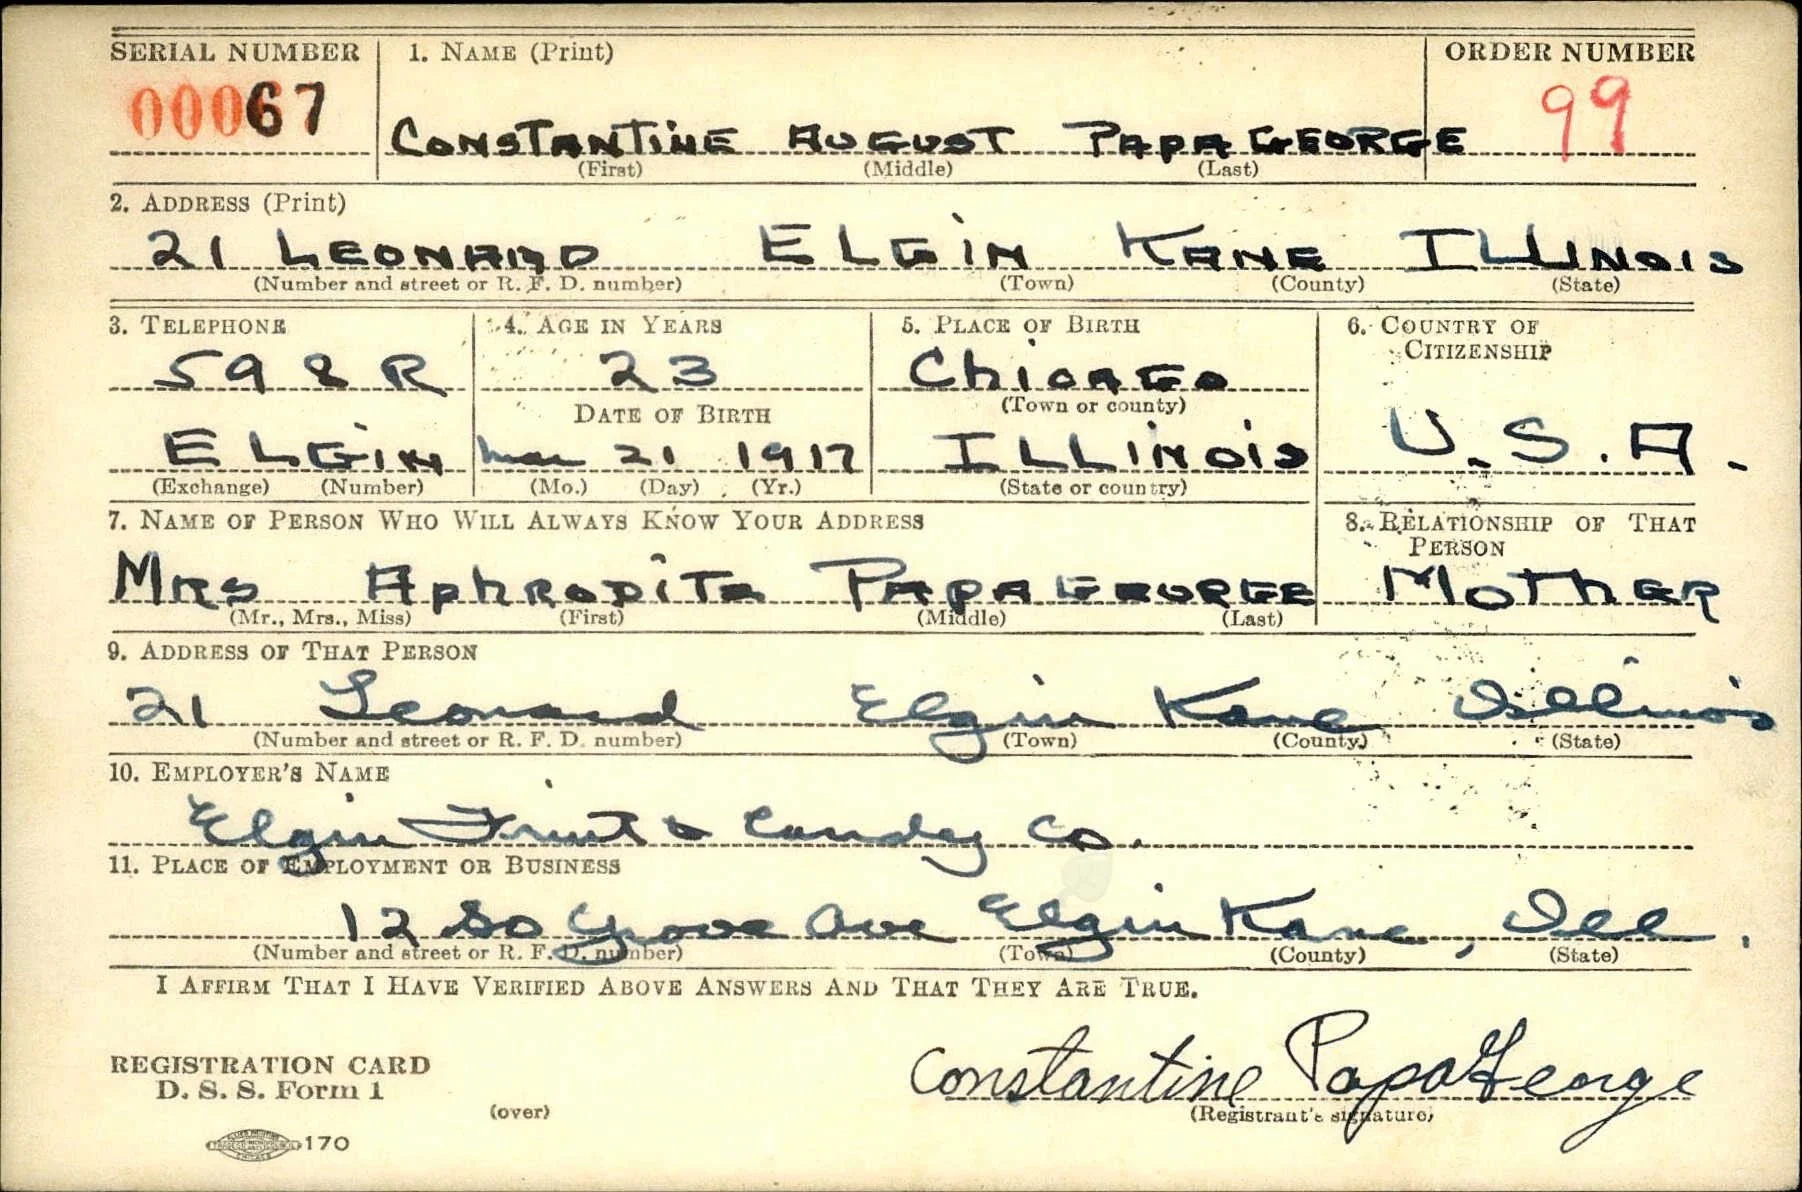 SERIAL NUMBER 1. NAME (Print) ORDER NUMBER
00067 CONSTANTINE AUGUST PAPAGEORGE 99
(First) (Middle) (Last)
2. ADDRESS (Print)
21 LEONARD ELGIN KANE ILLINOIS
(Number and street or R. F. D. number) (Town) (County) (State)
3. TELEPHONE 4. AGE IN YEARS 5. PLACE OF BIRTH 6. COUNTRY OF
CITIZENSHIP
598R 23 ChiCAGO
(Town or county)
DATE OF BIRTH
ELGIN Mar 21 1917 ILLINOIS U.S.A.
(Exchange) (Number) (Mo.) (Day) (Yr.) (State or country)
7. NAME OF PERSON WHO WILL ALWAYS KNOW YOUR ADDRESS 8. RELATIONSHIP OF THAT
PERSON
MRS AphRODITE PAPAGEORGE MOThER
(Mr., Mrs., Miss) (First) (Middle) (Last)
9. ADDRESS OF THAT PERSON
21 Leonard Elgin Kane Illinois
(Number and street or R. F. D. number) (Town) (County) (State)
10. EMPLOYER'S NAME
Elgin Fruit & Candy Co.
11. PLACE OF EMPLOYMENT OR BUSINESS
12 So Grove Ave Elgin Kane, Ill.
(Number and street or R. F. D. number) (Town) (County) (State)
I AFFIRM THAT I HAVE VERIFIED ABOVE ANSWERS AND THAT THEY ARE TRUE.
REGISTRATION CARD
D. S. S. Form 1
Constantine PapaGeorge
(over) (Registrant's signature)
170